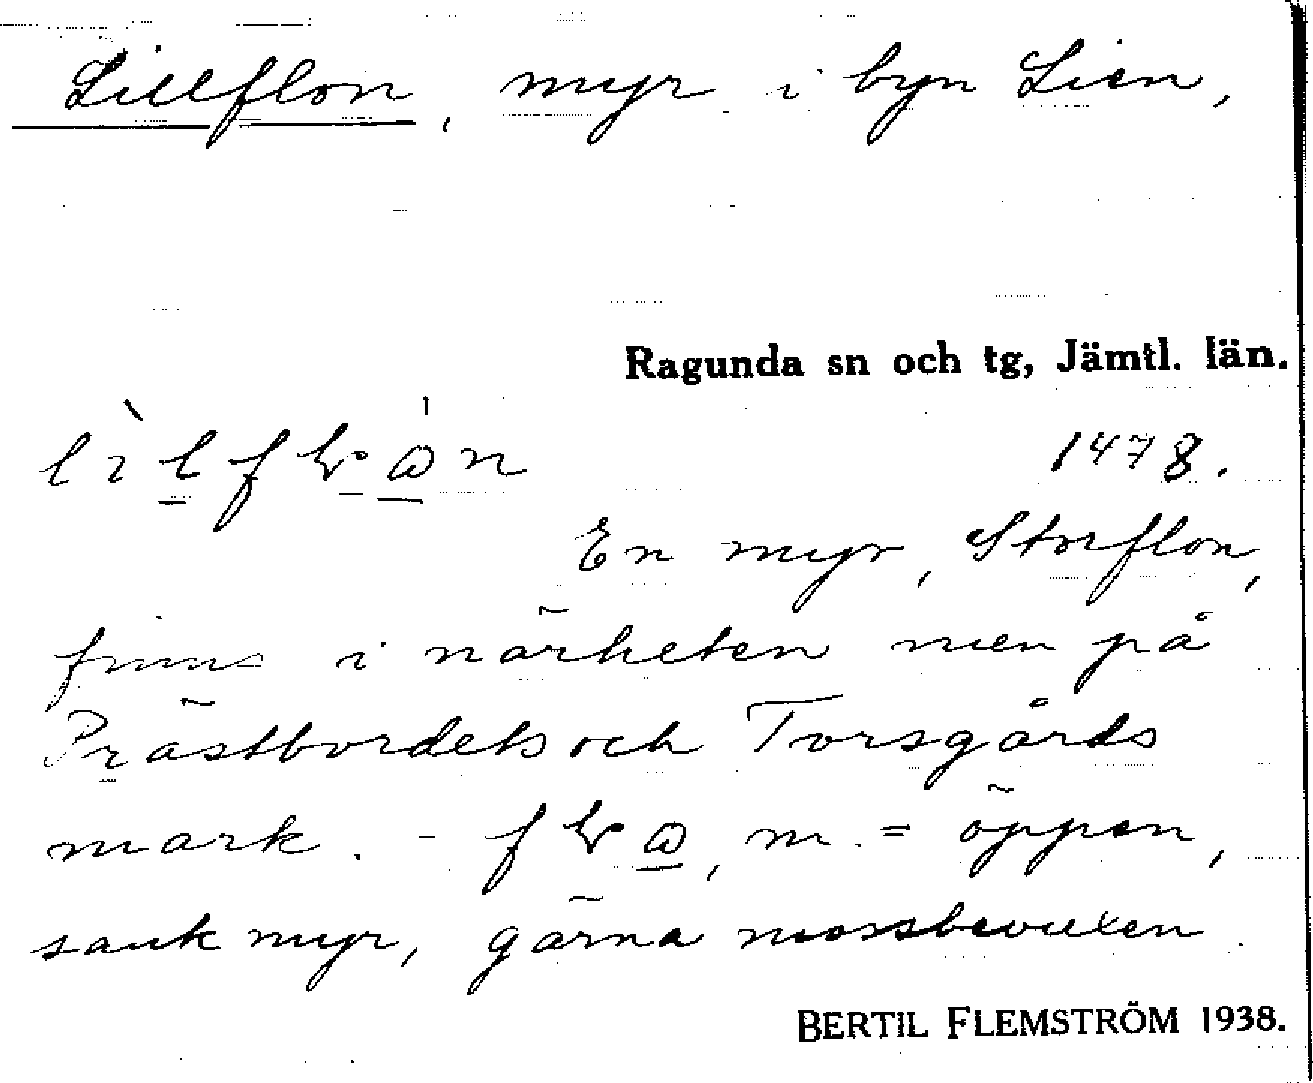 Lillflon, myr i byn Lien,
Ragunda sn och tg, Jämtl. län.
1478.
En myr, Storflon,
finns i närheten men på
Prästbordets och Torsgårds
mark. - , m. = öppen,
sank myr, gärna mossbevuxen.
BERTIL FLEMSTRÖM 1938.